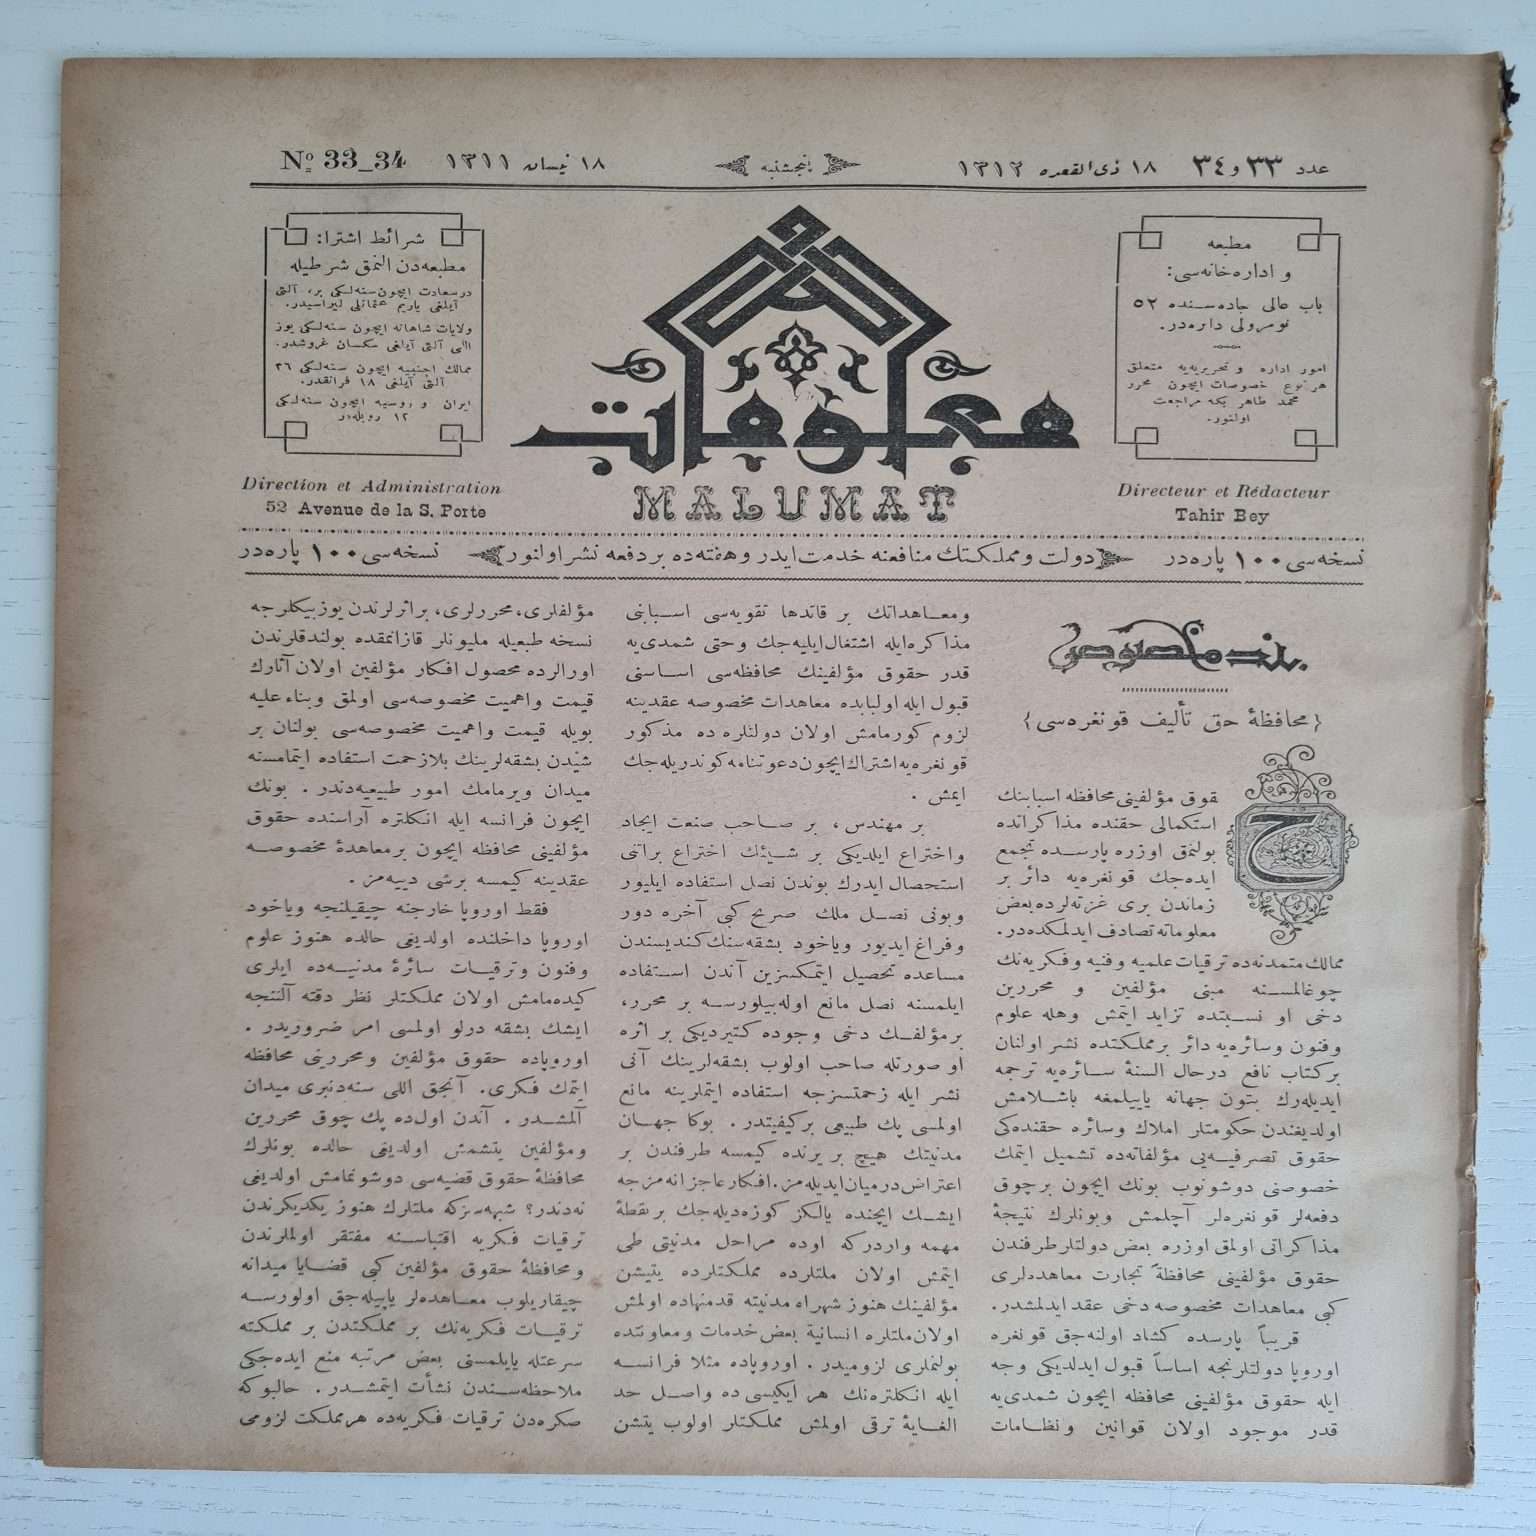 عدد ٣٣ و ٣٤
١٨ ذی القعده ١٣١٢
پنجشنبه
١٨ نیسان ١٣١١
Nº 33_34
مطبعه
و اداره‌خانه‌سی:
باب عالی جاده‌سنده ٥٢
نومرولی دائره‌در.
امور اداره و تحریریه‌یه متعلق
هر نوع خصوصات ایچون محرر
محمد طاهر بکه مراجعت
اولنور.
معلومات
MALUMAT
شرائط اشترا:
مطبعه‌دن النمق شرطیله
درسعادت ایچون سنه‌لکی بر، آلتی
آیلغی یاریم عثمانلی لیراسیدر.
ولایات شاهانه ایچون سنه‌لکی یوز
اللی آلتی آیلغی سکسان غروشدر.
ممالک اجنبیه ایچون سنه‌لکی ٣٦
آلتی آیلغی ١٨ فرانقدر.
ایران و روسیه ایچون سنه‌لکی
١٢ روبله‌در
Directeur et Rédacteur
Tahir Bey
Direction et Administration
52 Avenue de la S. Porte
نسخه‌سی ١٠٠ پاره‌در
دولت و مملکتك منافعنه خدمت ایدر و هفته‌ده بر دفعه نشر اولنور
نسخه‌سی ١٠٠ پاره‌در
بند مخصوص
{محافظهٔ حق تألیف قونغره‌سی}
حقوق مؤلفینی محافظه اسبابنك
استکمالی حقنده مذاکراتده
بولنمق اوزره پارسده تجمع
ایده‌جك قونغره‌یه دائر بر
زماندن بری غزته‌لرده بعض
معلوماته تصادف ایدلمکده‌در.
ممالك متمدنه‌ده ترقیات علمیه و فنیه و فکریه‌نك
چوغالمسنه مبنی مؤلفین و محررین
دخی او نسبتده تزاید ایتمش وهله علوم
وفنون وسائره‌یه دائر بر مملکتده نشر اولنان
بر کتاب نافع درحال السنهٔ سائره‌یه ترجمه
ایدیله‌رك بتون جهانه یاییلمغه باشلامش
اولدیغندن حکومتلر املاك وسائره حقنده‌کی
حقوق تصرفیه‌یی مؤلفاته‌ده تشمیل ایتمك
خصوصنی دوشونوب بونك ایچون بر چوق
دفعه‌لر قونغره‌لر آچلمش وبونلرك نتیجهٔ
مذاکراتی اولمق اوزره بعض دولتلر طرفندن
حقوق مؤلفینی محافظةً تجارت معاهده‌لری
کبی معاهدات مخصوصه دخی عقد ایدلمشدر.
قریباً پارسده کشاد اولنه‌جق قونغره
اوروپا دولتلرنجه اساساً قبول ایدلدیکی وجه
ایله حقوق مؤلفینی محافظه ایچون شمدی‌یه
قدر موجود اولان قوانین ونظامات
ومعاهداتك بر قاتدها تقویه‌سی اسبابنی
مذاکره ایله اشتغال ایلیه‌جك وحتی شمدی‌یه
قدر حقوق مؤلفینك محافظه‌سی اساسنی
قبول ایله اولبابده معاهدات مخصوصه عقدینه
لزوم کورمامش اولان دولتلره ده مذکور
قونغره‌یه اشتراك ایچون دعوتنامه کوندریله‌جك
ایمش.
بر مهندس، بر صاحب صنعت ایجاد
واختراع ایلدیکی بر شیئك اختراع براتنی
استحصال ایدرك بوندن نصل استفاده ایلیور
وبونی نصل ملك صریح کبی آخره دور
وفراغ ایدیور ویاخود بشقه‌سنك کندیسندن
مساعده تحصیل ایتمکسزین آندن استفاده
ایلمسنه نصل مانع اوله‌بیلورسه بر محرر،
بر مؤلفك دخی وجوده کتیردیکی بر اثره
او صورتله صاحب اولوب بشقه‌لرینك آنی
نشر ایله زحمتسزجه استفاده ایتملرینه مانع
اولمسی پك طبیعی بر کیفیتدر. بوکا جهان
مدنیتك هیچ بر یرنده کیمسه طرفندن بر
اعتراض درمیان ایدیله‌مز. افکار عاجزانه‌مزجه
ایشك ایچنده یالکز کوزه‌دیله‌جك بر نقطهٔ
مهمه واردرکه اوده مراحل مدنیتی طی
ایتمش اولان ملتلرده مملکتلرده یتیشن
مؤلفینك هنوز شهراه مدنیته قدمنهاده اولمش
اولان ملتلره انسانیة بعض خدمات ومعاونتده
بولنملری لزومیدر. اوروپاده مثلا فرانسه
ایله انکلتره‌نك هر ایکیسی ده واصل حد
الغایهٔ ترقی اولمش مملکتلر اولوب یتشن
مؤلفلری، محررلری، بر اثرلرندن یوز بیکلرجه
نسخه طبعیله ملیونلر قازانمقده بولندقلرندن
اورالرده محصول افکار مؤلفین اولان آثارك
قیمت واهمیت مخصوصه‌سی اولمق وبناءعلیه
بویله قیمت واهمیت مخصوصه‌سی بولنان بر
شیدن بشقه‌لرینك بلازحمت استفاده ایتمامسنه
میدان ویرمامك امور طبیعیه‌دندر. بونك
ایچون فرانسه ایله انکلتره آراسنده حقوق
مؤلفینی محافظه ایچون بر معاهدهٔ مخصوصه
عقدینه کیمسه برشی دییه‌مز.
فقط اوروپا خارجنه چیقیلنجه ویاخود
اوروپا داخلنده اولدیغی حالده هنوز علوم
وفنون وترقیات سائرهٔ مدنیه‌ده ایلری
کیده‌مامش اولان مملکتلر نظر دقته آلنجه
ایشك بشقه درلو اولمسی امر ضروریدر.
اوروپاده حقوق مؤلفین ومحررینی محافظه
ایتمك فکری. آنجق اللی سنه‌دنبری میدان
آلمشدر. آندن اول‌ده پك چوق محررین
ومؤلفین یتشمش اولدیغی حالده بونلرك
محافظهٔ حقوق قضیه‌سی دوشونمامش اولدیغی
نه‌دندر؟ شبهه‌سزکه ملتلرك هنوز یکدیکرندن
ترقیات فکریه اقتباسنه مفتقر اولملرندن
ومحافظهٔ حقوق مؤلفین کبی قضایا میدانه
چیقاریلوب معاهده‌لر یاپیله‌جق اولورسه
ترقیات فکریه‌نك بر مملکتدن بر مملکته
سرعتله یایلمسنی بعض مرتبه منع ایده‌جکی
ملاحظه‌سندن نشأت ایتمشدر. حالبوکه
صکره‌دن ترقیات فکریه‌ده هر مملکت لزومی